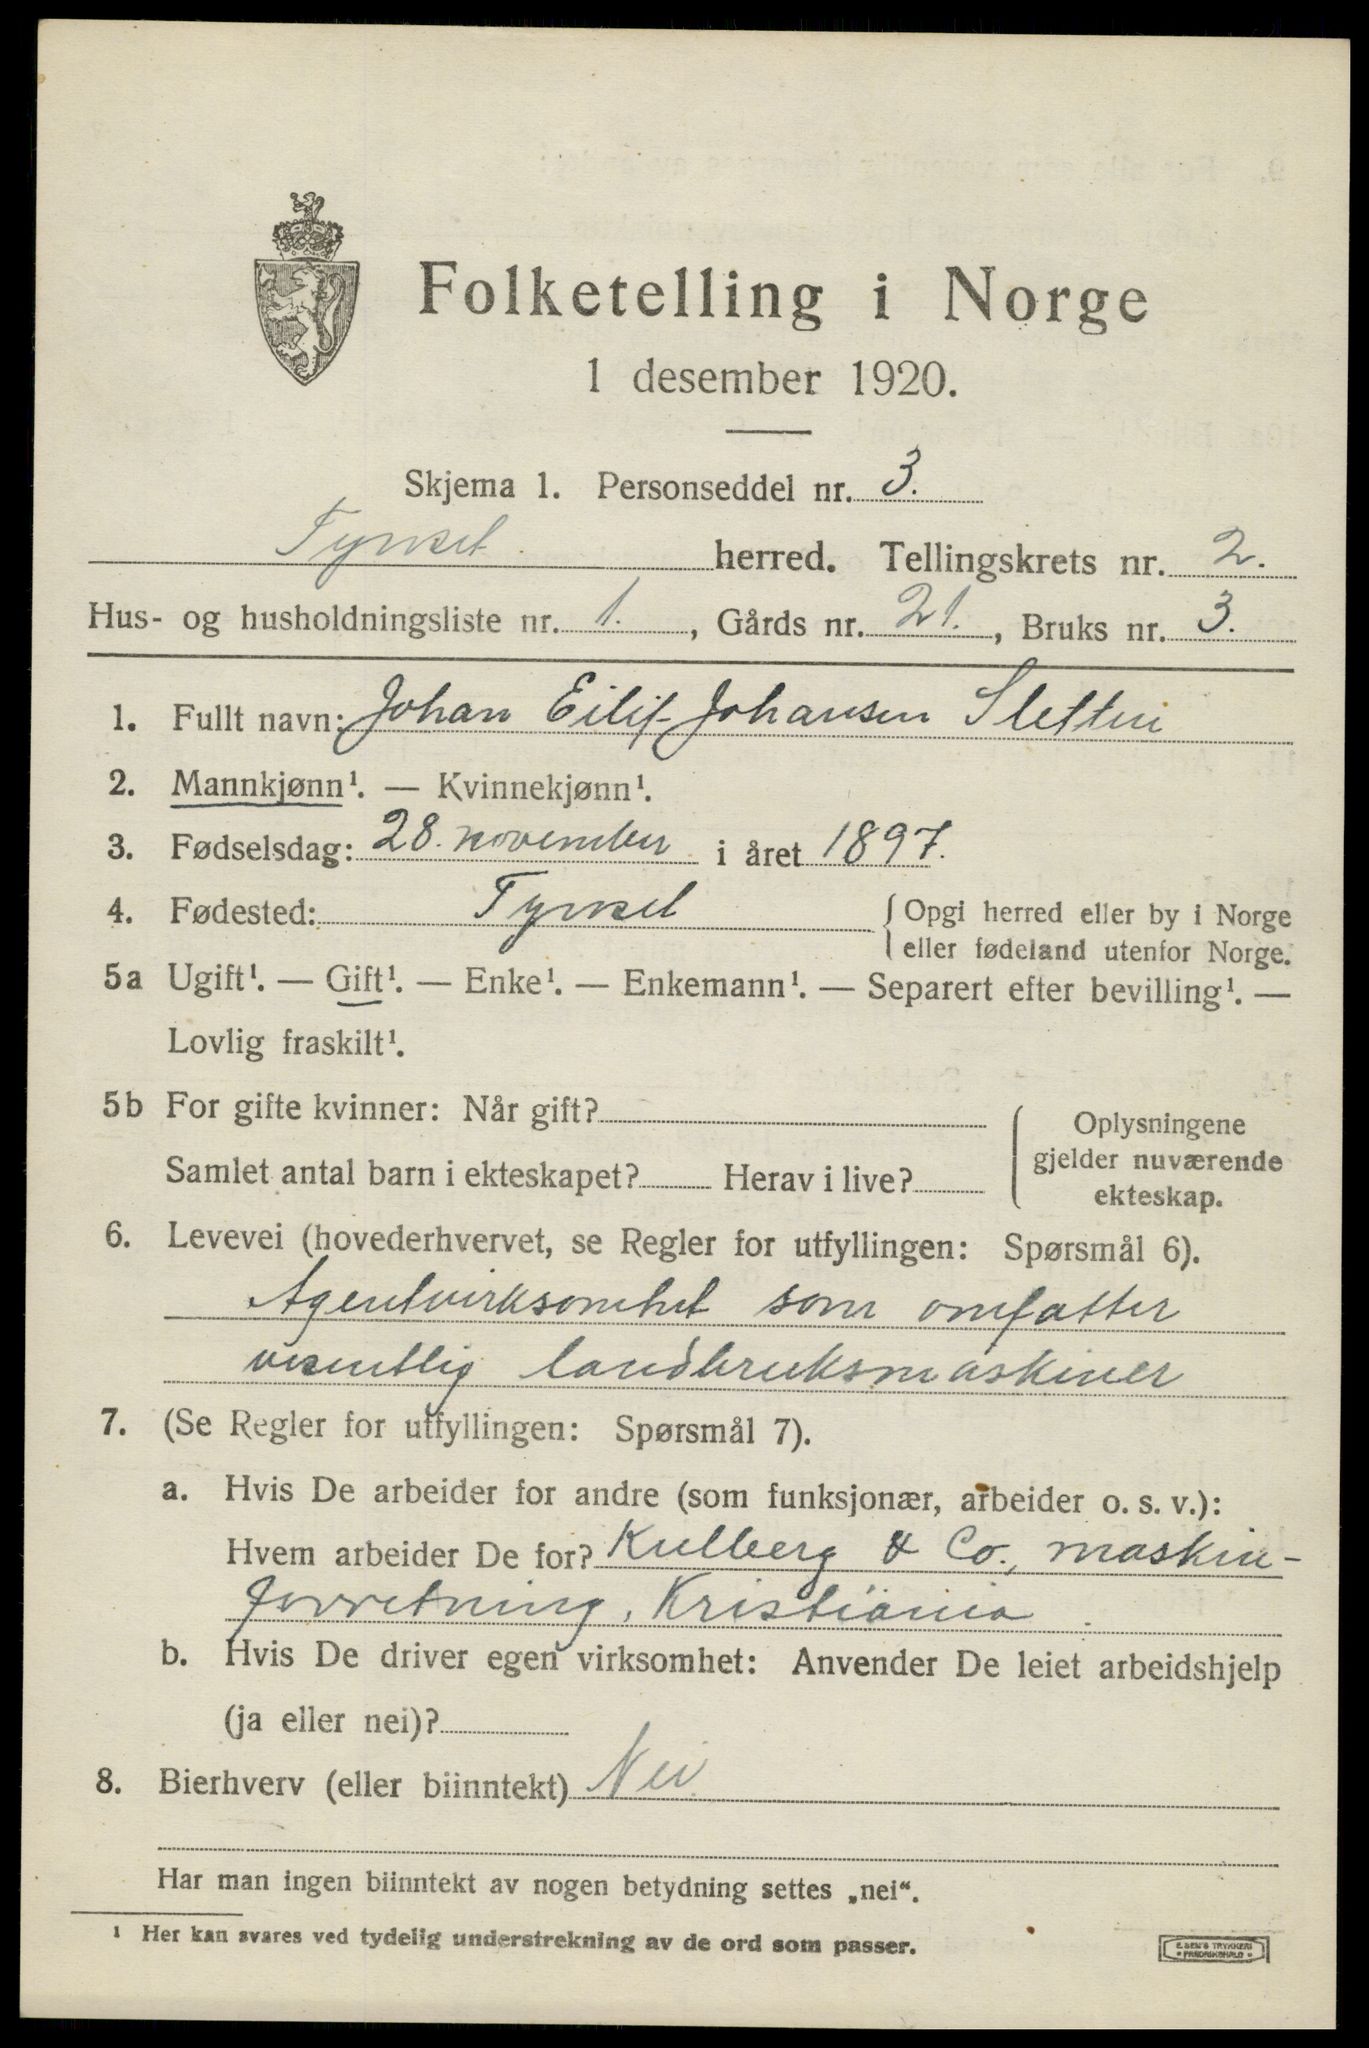 Folketelling i Norge
1 desember 1920.
Skjema 1. Personseddel nr. 3.
Tynset herred. Tellingskrets nr. 2.
Hus- og husholdningsliste nr. 1., Gårds nr. 21., Bruks nr. 3.
1. Fullt navn: Johan Eilif Johansen Sletten
2. Mannkjønn¹. — Kvinnekjønn¹.
3. Fødselsdag: 28. november i året 1897.
4. Fødested: Tynset { Opgi herred eller by i Norge
eller fødeland utenfor Norge.
5a Ugift¹. — Gift¹. — Enke¹. — Enkemann¹. — Separert efter bevilling¹. —
Lovlig fraskilt¹.
5b For gifte kvinner: Når gift?
Samlet antal barn i ekteskapet? Herav i live?
Oplysningene
gjelder nuværende
ekteskap.
6. Levevei (hovederhvervet, se Regler for utfyllingen: Spørsmål 6).
Agentvirksomhet som omfatter
vesentlig landbruksmaskiner
7. (Se Regler for utfyllingen: Spørsmål 7).
a. Hvis De arbeider for andre (som funksjonær, arbeider o. s. v.):
Hvem arbeider De for? Kullberg & Co., maskin-
forretning, Kristiania
b. Hvis De driver egen virksomhet: Anvender De leiet arbeidshjelp
(ja eller nei)?
8. Bierhverv (eller biinntekt) Nei
Har man ingen biinntekt av nogen betydning settes „nei".
¹ Her kan svares ved tydelig understrekning av de ord som passer.
E. SEM'S TRYKKERI
FREDRIKSHALD